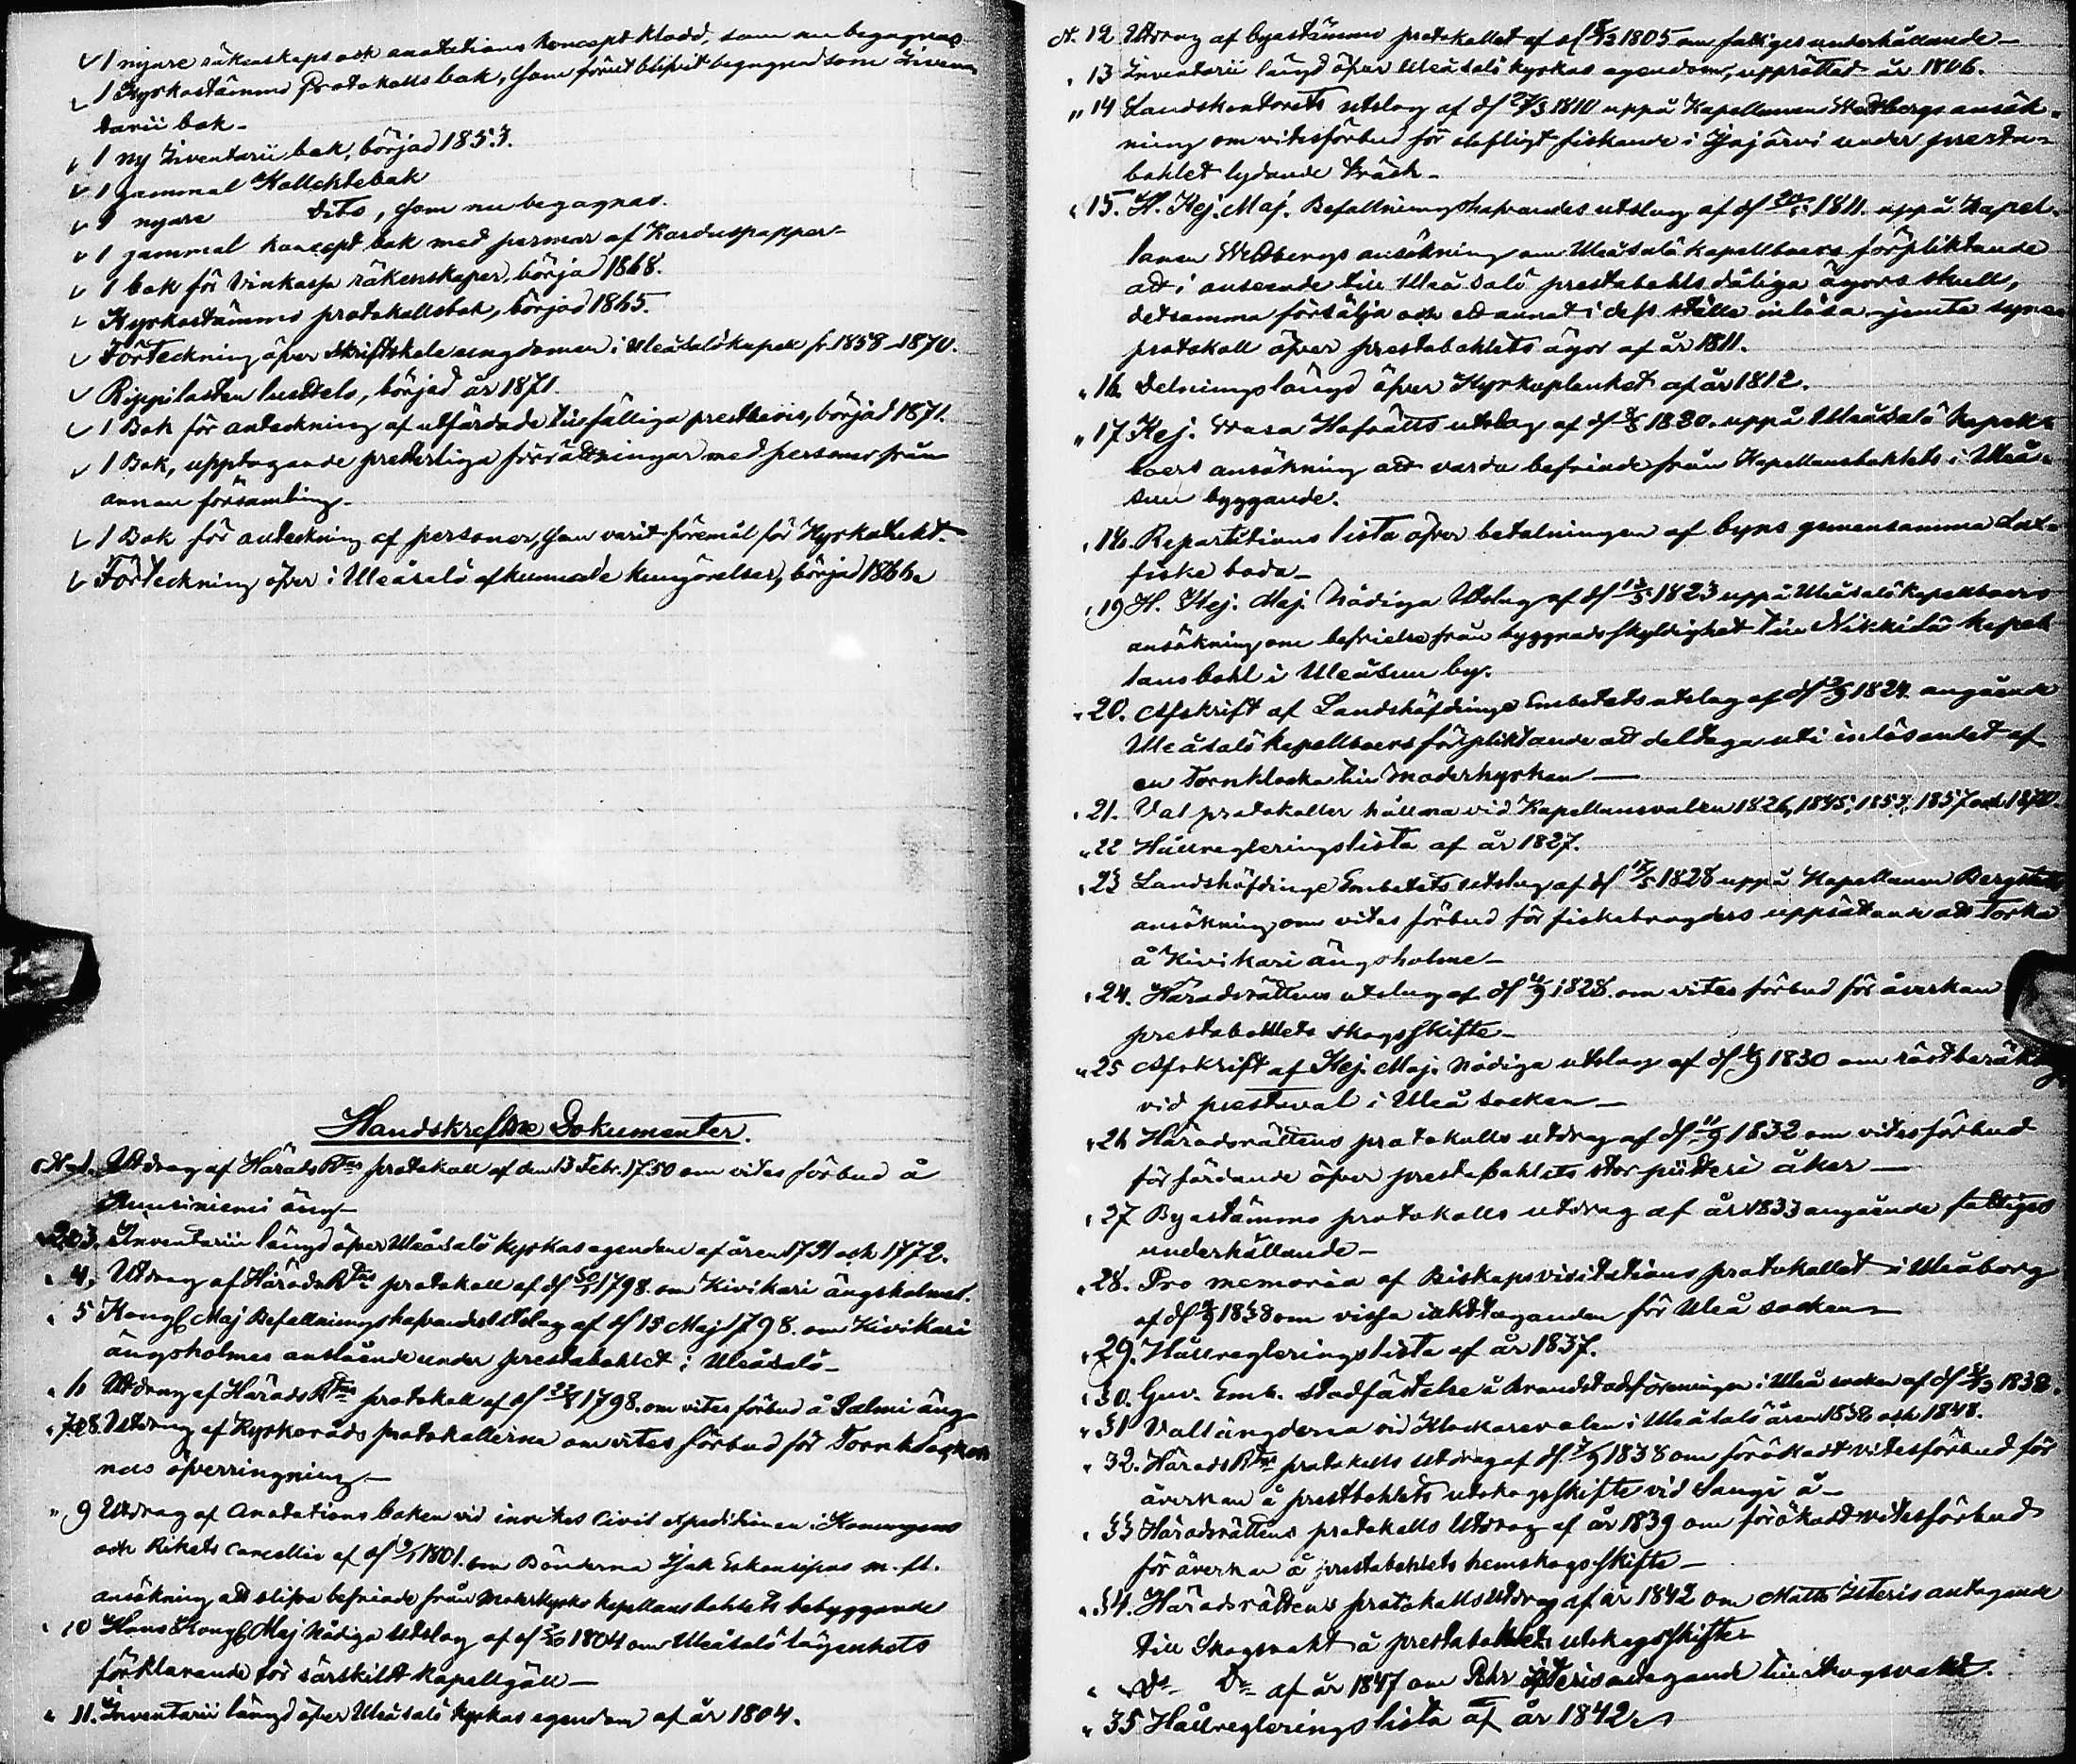 1 nyare räkenskaps och anotations koncept kladd, som nu begagnas
1 Kyrkostämmo Protokolls bok, som förut blifvit begagnad som Inven
tarii bok.
1 ny Inventarii bok, börjad 1853.
1 gammal Kollektebok
1 nyare dito, som nu begagnas.
1 gammal koncept bok med permar af Karduspapper
1 bok för Vinkassa räkenskaper, börjad 1868.
Kyrkostämmo protokollsbok, börjad 1865.
Förteckning öfver Skriftskole ungdomen i Uleåsalo kapell fr 1858-1870.
Rippilasten luettelo, börjad år 1871.
1 Bok för anteckning af utfärdade tillfälliga prestbevis, börjad 1871.
1 Bok, upptagande presterliga förrättningar med personer från
annan församling.
1 Bok för anteckning af personer, som varit föremål för Kyrkotukt.
Förteckning öfver i Uleåsalo afkunnade kungörelser, börjad 1866.
Handskrefne Dokumenter.
No 1. Utdrag af Härads Rtns protokoll af den 13 Febr. 1750 om vites förbud å
äng
2 o 3. Inventarii längd öfver Uleåsalo kyrkas egendom af åren 1791 och 1772.
4. Utdrag af Härads Rtns protokoll af d 1798. om Kivikari ängsholmet.
5 Kongl Maj Befallningshafvandes Utslag af d 15 Maj 1798. om Kivikari
ängsholmes anslående under prestabohlet i Uleåsalo
6 Utdrag af Härads Rtns protokoll af d 1798. om vites förbud å Salmi äng
7 o 8. Utdrag af Kyrkoråds protokollerna om vites förbud för Tornklockor
nas öfverringning
9 Utdrag af Anotations boken vid inrikes Civil expeditionen i Konungens
och Rikets Cancellie af d 1801. om Bönderna Isak m. fl.
ansökning att blifva befriade från Moderkyrko kapellansbohlets bebyggande
10 Hans Kongl Maj Nådiga Utslag af d 1804 om Uleåsalo lägenhets
förklarande för särskildt kapellgäll
11. Inventarii längd öfver Uleåsalo kyrkas egendom af år 1804.
N. 12 Utdrag af byastämmo protokollet af d 1805 om fattiges underhållande
13 Inventarii längd öfver Uleåsalo kyrkas egendom, upprättad år 1806.
14 Landskontorets utslag af d 27/3 1810 uppå Kapellanen Wettbergs ansök
ning om vitesförbud för olofligt fiskande i under presta-
bohlet lydande träsk.
15. H. Kej. Maj. Befallningshafvandes utslag af d 1811. uppå Kapel-
lanen Wettbergs ansökning om Uleåsalo kapellboers förpliktande
att i anseende till Uleåsalo prestabohls dåliga ägors skull,
detsamma försälja och ett annat i dess ställe inlösa jemte syne
protokoll öfver prestabohlets ägor af år 1811.
16. Delningslängd öfver Kyrkoplanket af år 1812.
17 Kej. Wasa Hofrätts utslag af d 1820. uppå Uleåsalo kapell-
boers ansökning att varda befriade från Kapellansbohlets i Uleå-
sun byggande.
18. Repartitions lista öfver betalningen af byns gemensamma lax-
fiske boda
19 H. Kej. Maj. Nådiga Utslag af d 1823 uppå Uleåsalo kapellboers
ansökning om befrielse från byggnadsskyldighet till Nikkilä kapel
lans bohl i Uleåsun by.
20. Afskrift af Landshöfdinge Embetets utslag af d 1824 angående
Uleåsalo kapellboers förpliktande att deltaga uti inlösandet af
en Tornklocka till moderkyrkan
21. Val protokoller hållna vid Kapellansvalen 1826, 1845, 1853, 1857 och 1870.
22 Hållregleringslista af år 1827.
23 Landshöfdinge Embetets utslag af d 1828 uppå Kapellanen
ansökning om vites förbud för fiskebragders uppsättande att torka
å Kivikari ängsholme
24. Häradsrättens utslag af d 1828. om vites förbud för åverkan
prestabohlets skogsskifte
25 Afskrift af Kej. Maj. Nådiga utslag af d 1830 om röstberäkn
vid prestval i Uleå socken
26 Häradsrättens protokolls utdrag af d 1832 om vitesförbud
för färdande öfver prestabohlets stor åker
27 Byastämmo protokolls utdrag af år 1833 angående fattiges
underhållande
28. Pro memoria af Biskopsvisitations protokollet i Uleåborg
af d 1838 om vissa iakttaganden för Uleå socken
29. Hållregleringslista af år 1837.
30. Guv. Emb. stadfästelse å Brandstodsföreningen i Uleå socken af d 1838.
31 Vallängderna vid Klockarevalen i Uleåsalo åren 1838 och 1848.
32. Härads Rtns protokolls utdrag af d. 1838 om förökadt vitesförbud för
åverkan å prestbohlets utskogsskifte vid Sangi å
33 Häradsrättens protokolls Utdrag af år 1839 om förökadt vitesförbud
för åverkan å prestabohlets hemskogsskifte
34. Häradsrättens protokolls Utdrag af år 1842 om Matts Isteris antagande
till Skogvakt å prestabohlets utskogsskifte
Do Do af år 1847 om Pehr Isteris antagande till skogsvakt.
35 Hållregleringslista af år 1842.